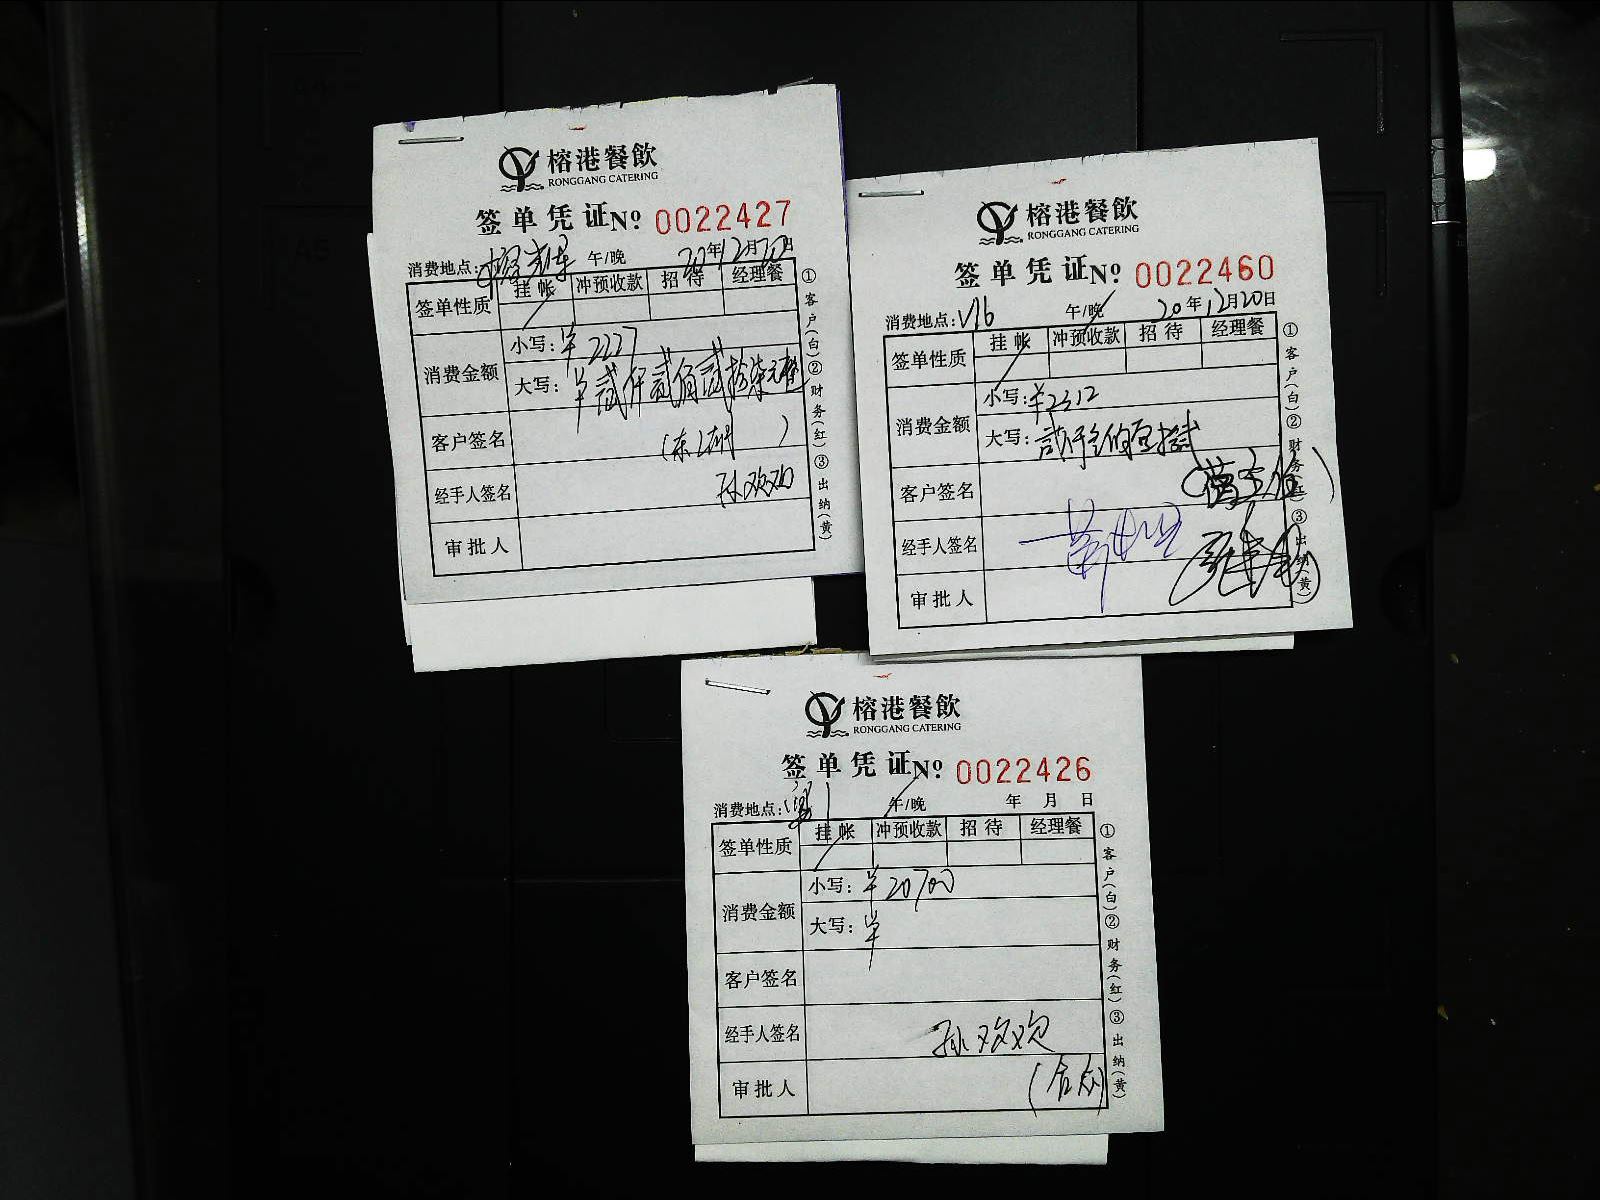 榕港餐飲
RONGGANG CATERING
签单凭证No 0022427
消费地点: 午/晚 20年12月20日
签单性质 挂帐 冲预收款 招待 经理餐
消费金额 小写: ¥2227
大写: ¥贰仟贰佰贰拾柒元整
客户签名
经手人签名 孙欢欢
审批人
①客户(白)②财务(红)③出纳(黄)
榕港餐飲
RONGGANG CATERING
签单凭证No 0022460
消费地点: V16 午/晚 20年12月20日
签单性质 挂帐 冲预收款 招待 经理餐
消费金额 小写: ¥2312
大写: 贰仟叁佰壹拾贰
客户签名
经手人签名
审批人
①客户(白)②财务(红)③出纳(黄)
榕港餐飲
RONGGANG CATERING
签单凭证No 0022426
消费地点: 午/晚 年 月 日
签单性质 挂帐 冲预收款 招待 经理餐
消费金额 小写: ¥20700
大写: ¥
客户签名
经手人签名 孙欢欢
审批人 (合众)
①客户(白)②财务(红)③出纳(黄)
A5